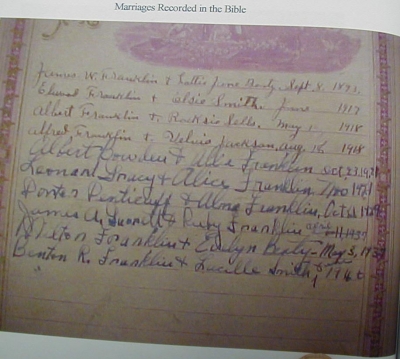 Marriages Recorded in the Bible
James W. Franklin & Sallie Jane Beaty. Sept. 8, 1893,
Elwood Franklin & Elsie Smith. June 1917
Albert Franklin & Sells. May 1918
Alfred Franklin & Velvie Jackson, Aug. 18, 1918
Albert Bowden & Franklin Oct 23, 1921
Leonard Tracy & Alice Franklin Nov 1921
Porter & Alma Franklin, Oct
James A. & Ruby Franklin
Milton Franklin & Evelyn Beaty - May 3,
Benton K. Franklin & Lucille Smith,